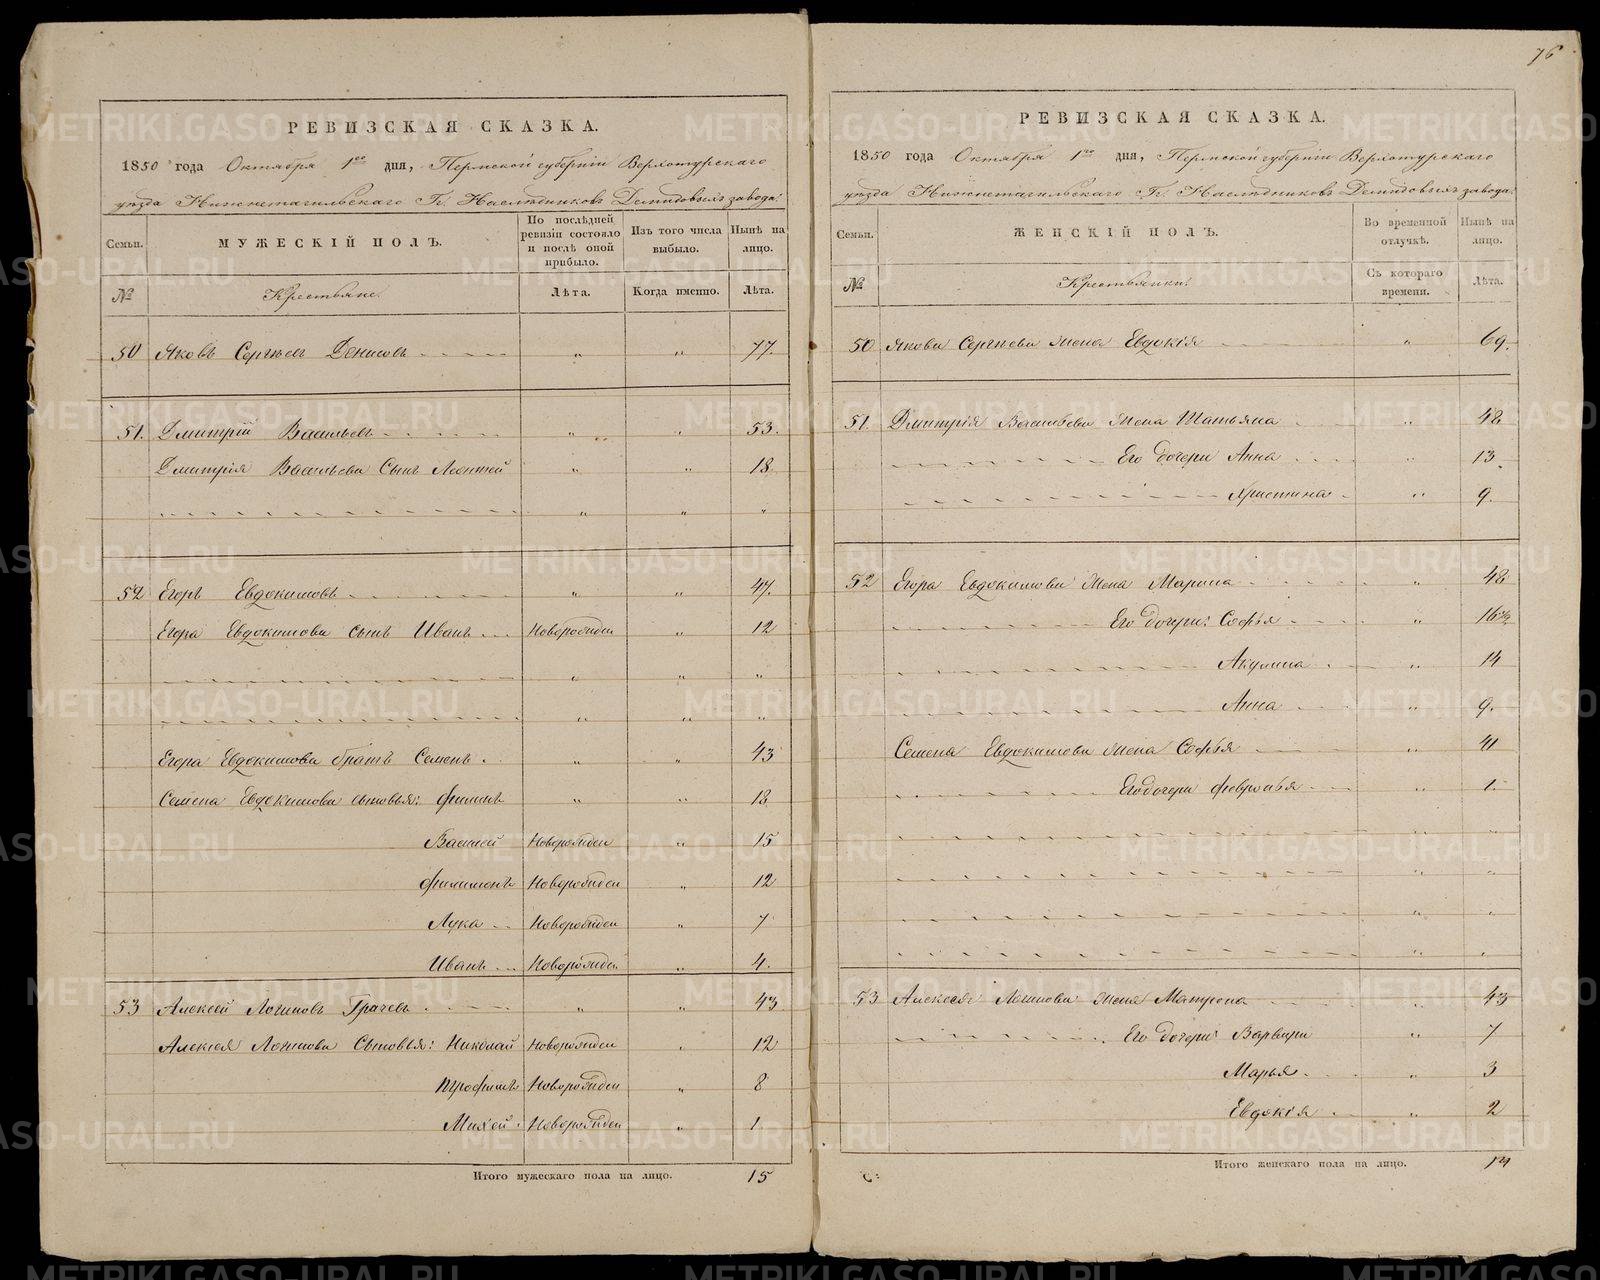 РЕВИЗСКАЯ СКАЗКА.
1850 года Октября 1го дня, Пермской губерніи Верхотурскаго
уѣзда Нижнетагильскаго Гг. Наслѣдниковъ Демидовыхъ завода:
Семьи.
МУЖЕСКІЙ ПОЛЪ.
По послѣдней ревизіи состояло и послѣ оной прибыло.
Изъ того числа выбыло.
Нынѣ на лицо.
№
Крестьяне.
Лѣта.
Когда именно.
Лѣта.
50 Яковъ Сергѣевъ Денисовъ " " 77.
51. Дмитрій Васильевъ " " 53.
Дмитрія Васильева Сынъ Леонтей " " 18.
" " "
52 Егоръ Евдокимовъ " " 47.
Егора Евдокимова сынъ Иванъ Новорожден " 12
" " "
" " "
Егора Евдокимова братъ Семенъ " " 43
Семена Евдокимова сыновья: Филипъ " " 18
Василей Новорожден " 15
Филимонъ Новорожден " 12
Лука Новорожден " 7
Иванъ Новорожден " 4.
53 Алексей Логиновъ Грачевъ " " 43
Алексея Логинова Сыновья: Николай Новорожден " 12
Трофимъ Новорожден " 8
Михей Новорожден " 1.
Итого мужескаго пола на лицо. 15
76
РЕВИЗСКАЯ СКАЗКА.
1850 года Октября 1го дня, Пермской губерніи Верхотурскаго
уѣзда Нижнетагильскаго Гг. Наслѣдниковъ Демидовыхъ завода:
Семьи.
ЖЕНСКІЙ ПОЛЪ.
Во временной отлучкѣ.
Нынѣ на лицо.
№
Крестьянки:
Съ котораго времени.
Лѣта.
50 Якова Сергѣева жена Евдокія " 69.
51. Дмитрія Васильева жена Татьяна " 48
Его дочери Анна " 13.
Христина " 9.
52 Егора Евдокимова жена Марина " 48
Его дочери: Софья " 16½
Акулина " 14
Анна " 9.
Семена Евдокимова жена Софья " 41
Его дочери Февронья " 1.
" "
" "
" "
" "
53 Алексея Логинова жена Матрена " 43
Его дочери: Варвара " 7
Марья " 3
Евдокія " 2
Итого женскаго пола на лицо. 14
METRIKI.GASO-URAL.RU